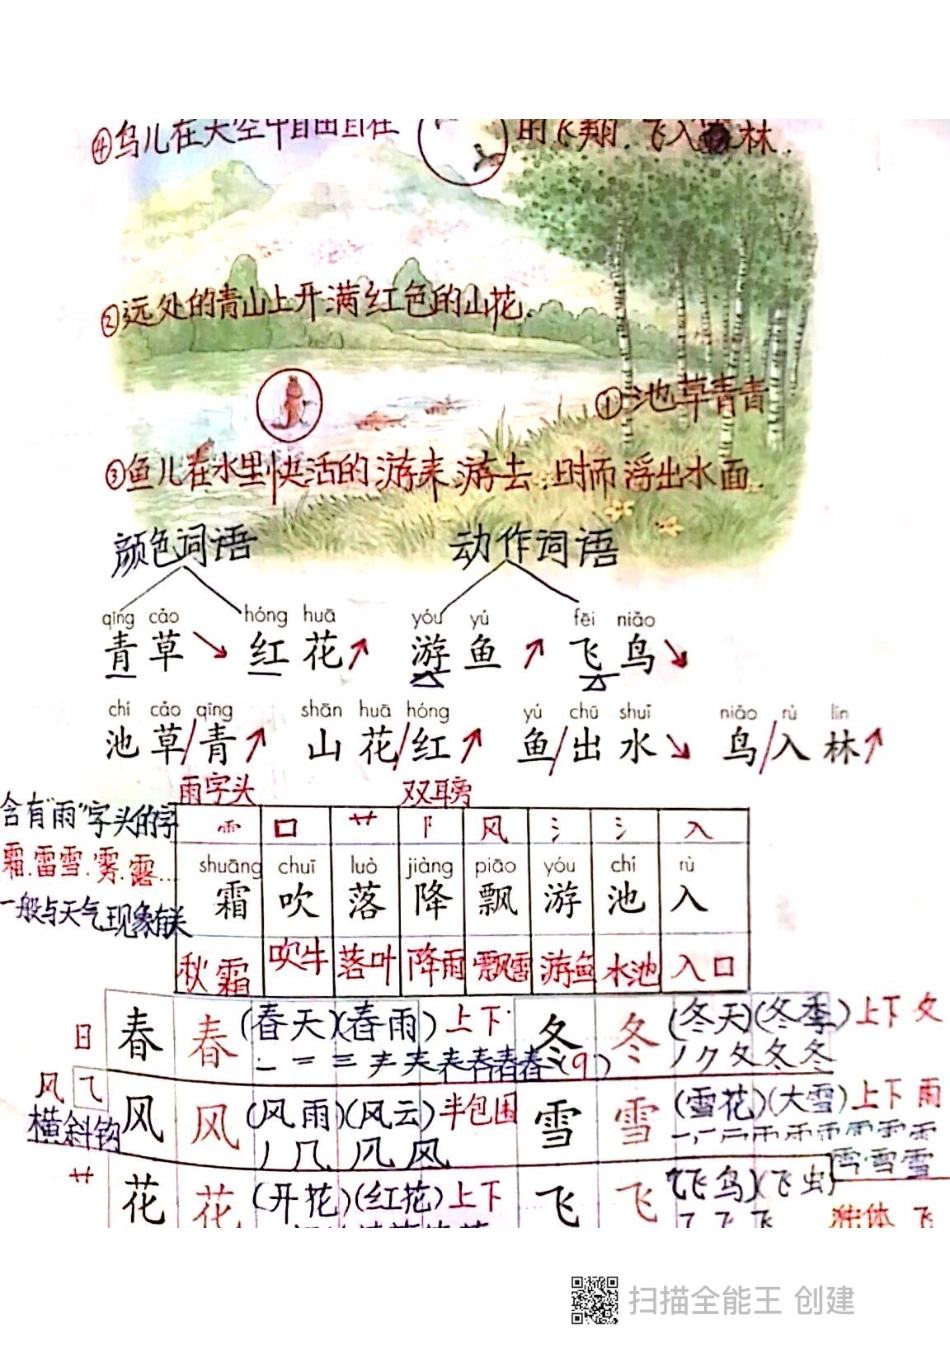 ④鸟儿在天空中自由自在的飞翔.飞入林.
②远处的青山上开满红色的山花.
①池草青青
③鱼儿在水里快活的游来游去.时而浮出水面.
颜色词语 动作词语
qīng cǎo hóng huā yóu yú fēi niǎo
青草 红花 游鱼 飞鸟
chí cǎo qīng shān huā hóng yú chū shuǐ niǎo rù lín
池草/青 山花/红 鱼/出水 鸟/入林
雨字头 双耳旁
含有"雨"字头的字
霜.雷雪.雾.露...
一般与天气现象有关
⻗ 口 艹 阝 风 氵 氵 入
shuāng chuī luò jiàng piāo yóu chí rù
霜 吹 落 降 飘 游 池 入
秋霜 吹牛 落叶 降雨 飘雪 游鱼 水池 入口
日 春 春 (春天)(春雨) 上下 冬 冬 (冬天)(冬季) 上下 夂
一 二 三 声 夫 表 春春春(9) ノ ク 夂 冬 冬
风 ㇈ 风 风 (风雨)(风云) 半包围 雪 雪 (雪花)(大雪) 上下 雨
横斜钩
丿 几 凡 风
雪 雪 雪
艹 花 花 (开花)(红花) 上下 飞 飞 (飞鸟)(飞虫)
独体 飞
扫描全能王 创建